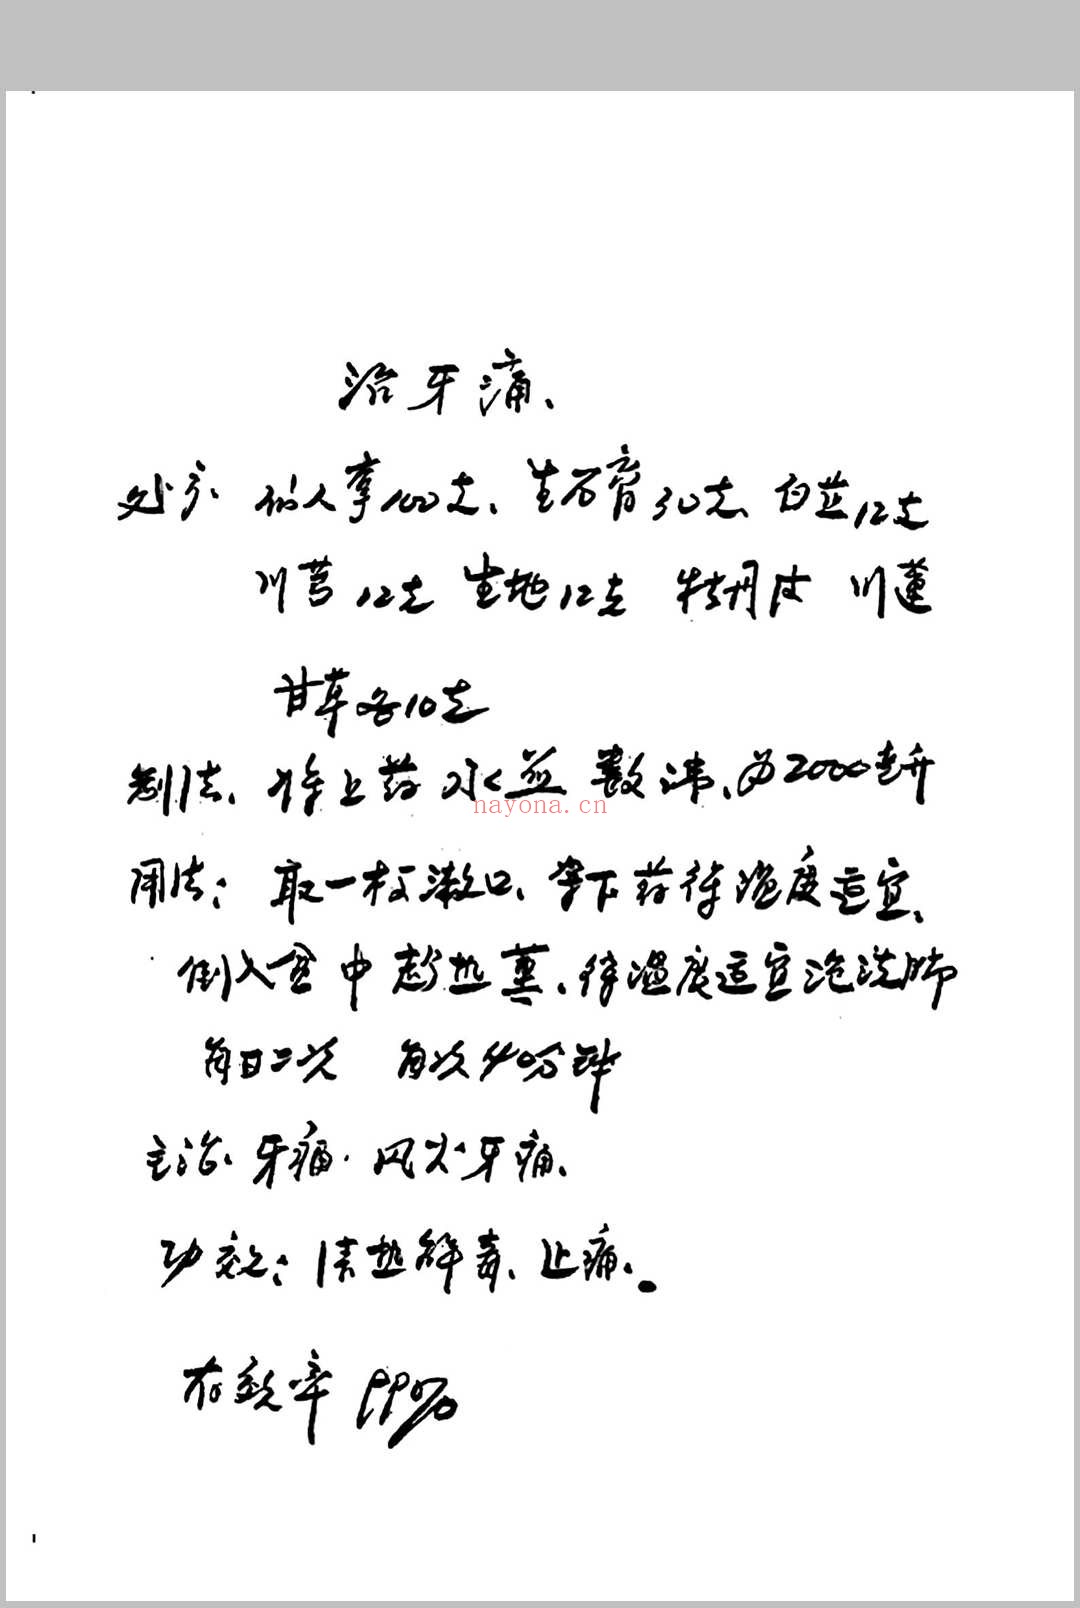 治牙痛、
处方、仙人掌100克、生石膏30克、白芷12克
川芎12克 生地12克 牡丹皮 川莲
甘草各10克
制法、将上药水煎数沸、为2000毫升
nayona.cn
用法：取一杯漱口、余下药待温度适宜、
倒入盆中趁热熏、待温度适宜泡洗脚
每日二次 每次40分钟
主治、牙痛、风火牙痛、
功效：清热解毒、止痛。
有效率99%